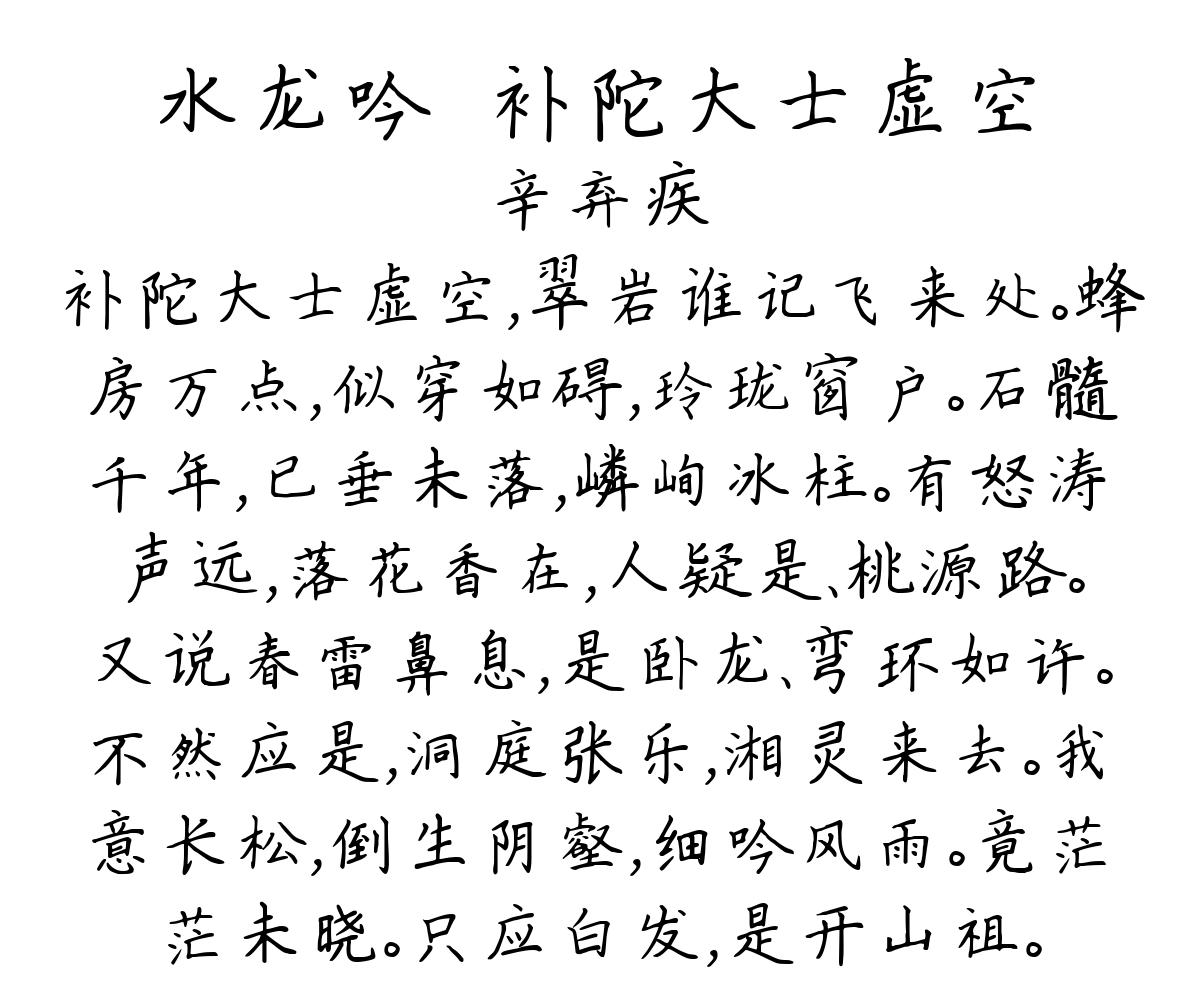 水龙吟 补陀大士虚空
辛弃疾
补陀大士虚空,翠岩谁记飞来处。蜂
房万点,似穿如碍,玲珑窗户。石髓
千年,已垂未落,嶙峋冰柱。有怒涛
声远,落花香在,人疑是、桃源路。
又说春雷鼻息,是卧龙、弯环如许。
不然应是,洞庭张乐,湘灵来去。我
意长松,倒生阴壑,细吟风雨。竟茫
茫未晓。只应白发,是开山祖。